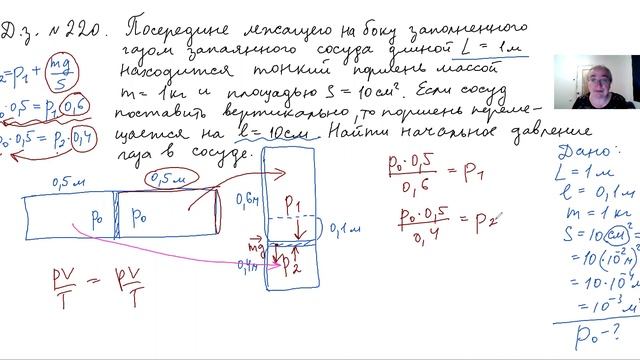 Д.з. №220. Посередине лежащего на боку заполненного
газом запаянного сосуда длиной L = 1м
находится тонкий поршень массой
m = 1кг и площадью S = 10см². Если сосуд
поставить вертикально, то поршень переме-
щается на l = 10см. Найти начальное давление
газа в сосуде.
₂ = p₁ + mg/S
₀·0,5 = p₁ 0,6
₀·0,5 = p₂ 0,4
0,5м
0,5м
p₀
p₀
pV/T = pV/T
0,6м
p₁
0,1м
mg
0,4м
p₂
p₀·0,5/0,6 = p₁
p₀·0,5/0,4 = p₂
Дано:
L = 1м
l = 0,1м
m = 1кг
S = 10см² =
= 10(10⁻²м)
= 10·10⁻⁴м
= 10⁻³м²
p₀ - ?